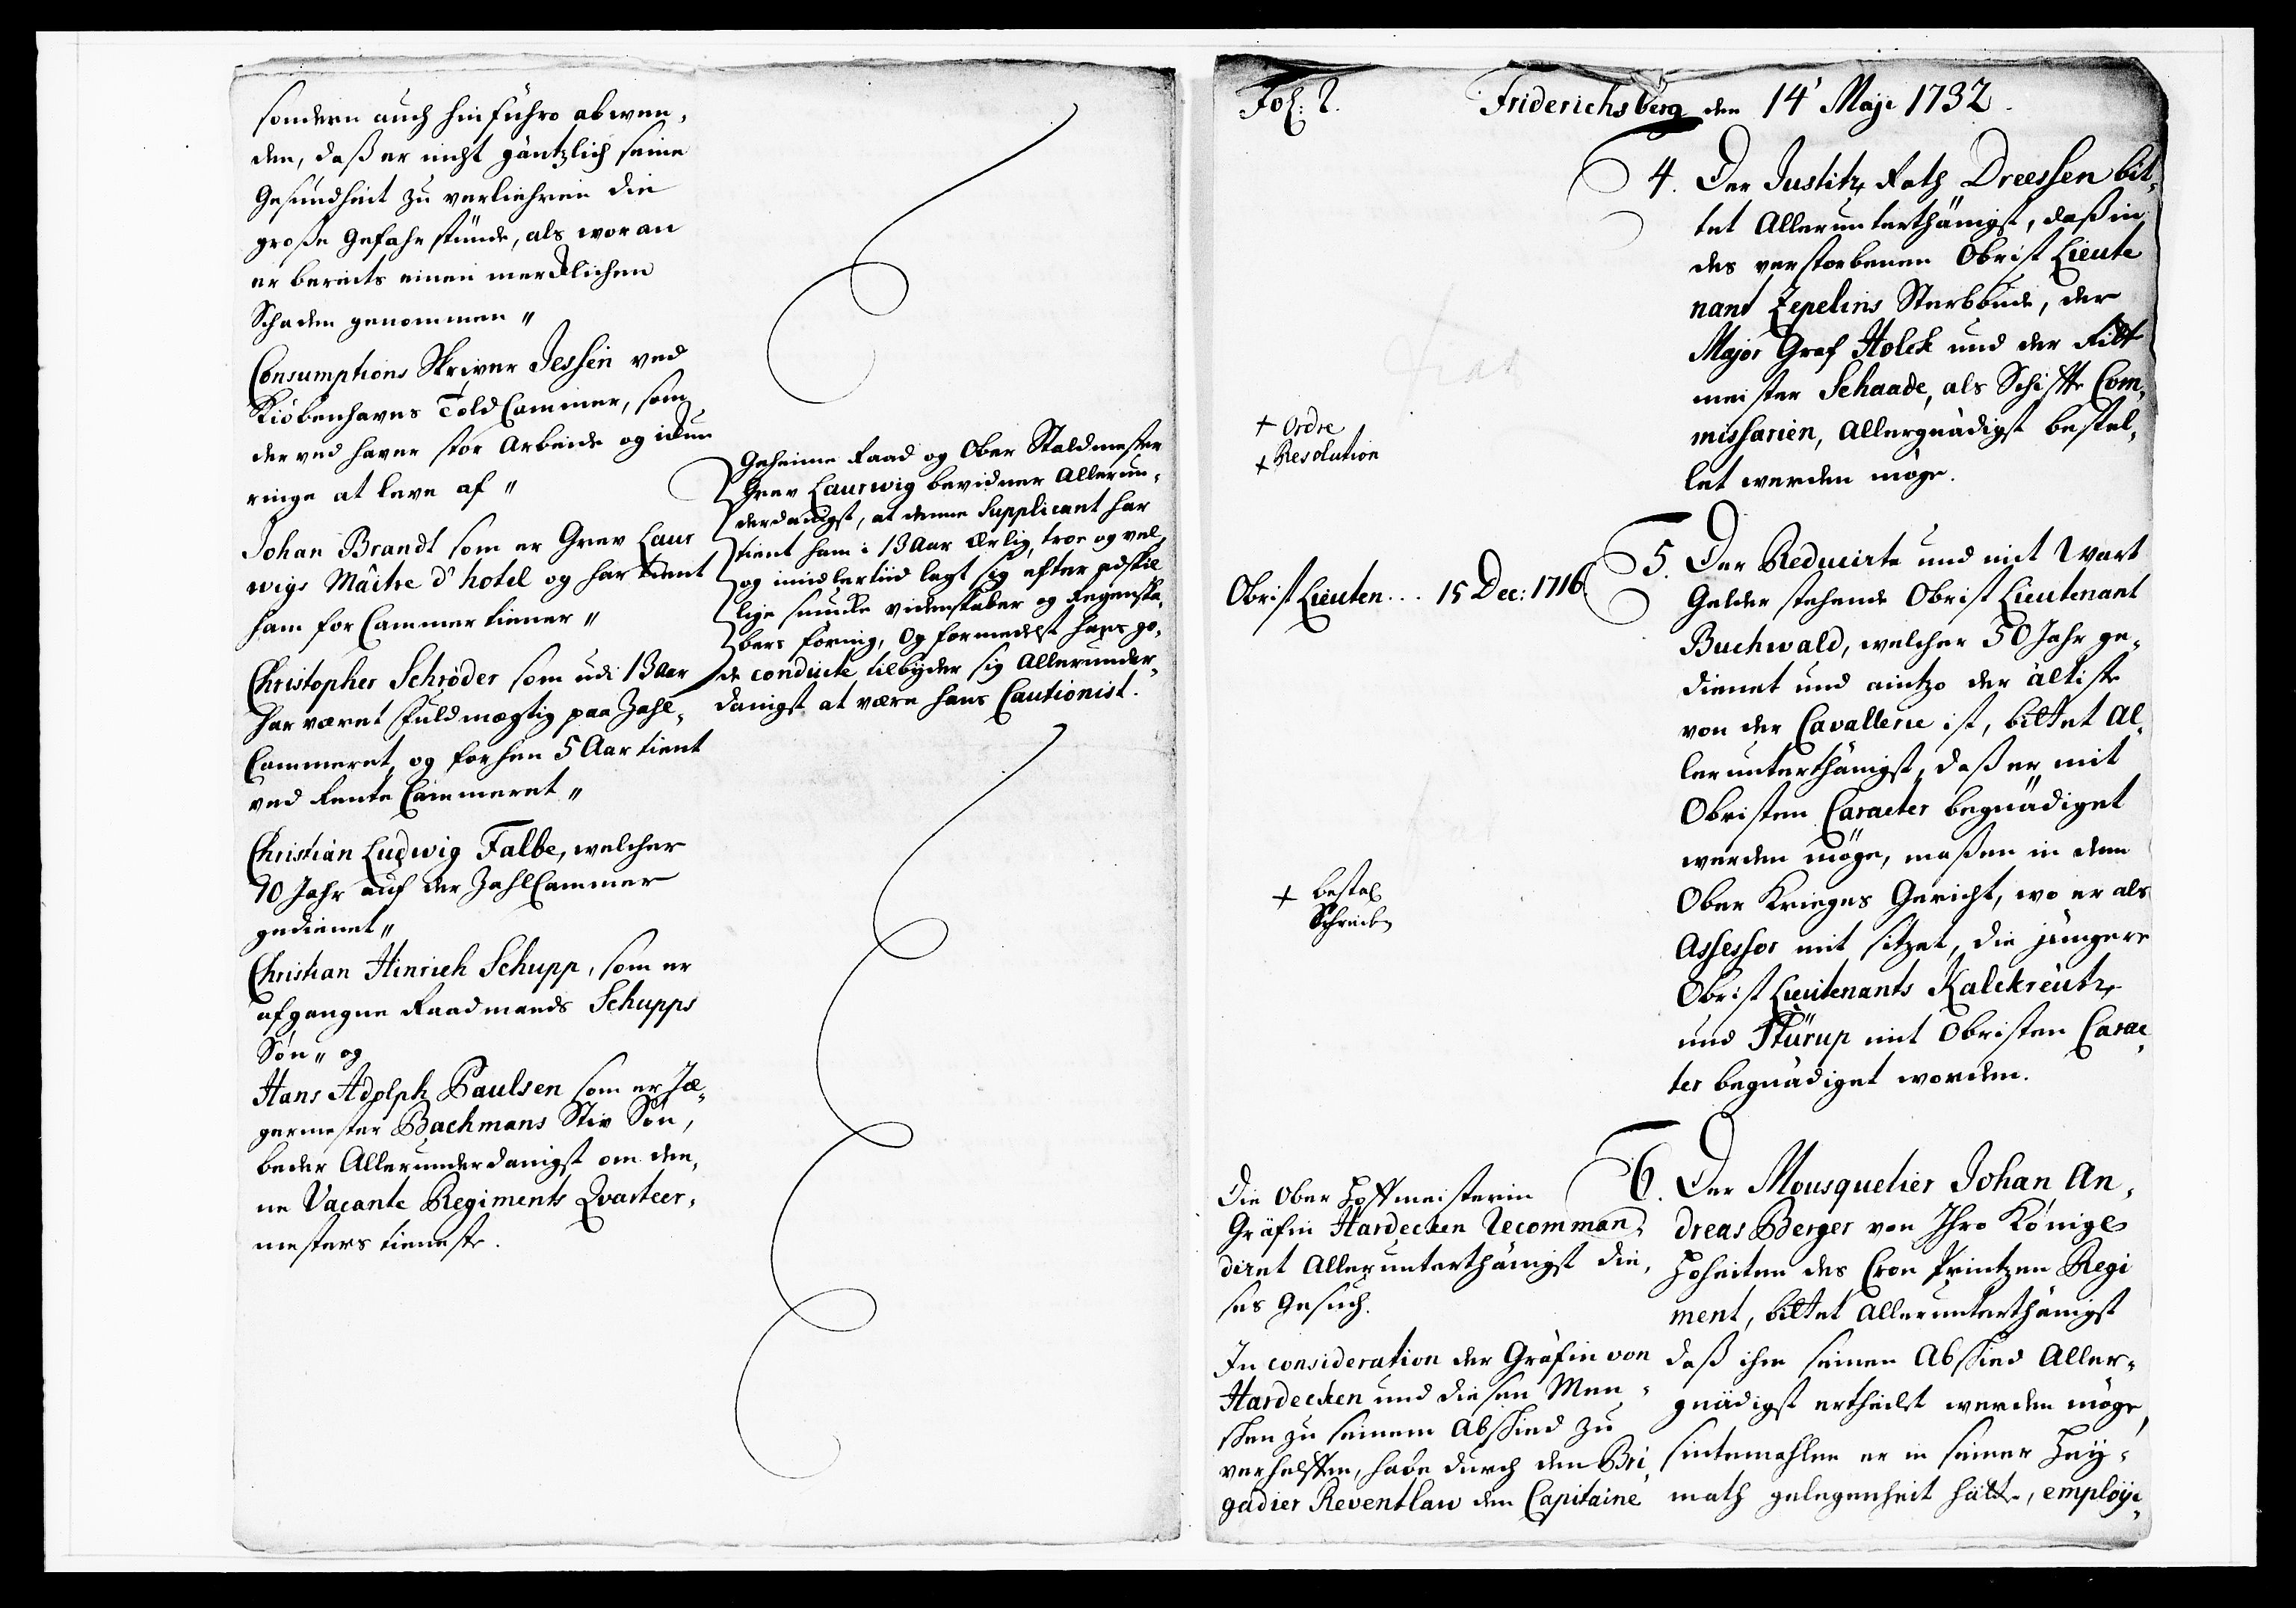 sondern auch hinführo abwen,
den, daß er nicht gäntzlich seine
Gesundheit zu verliehren die
große Gefahr stünde, als woran
er bereits einen mercklichen
Schaden genommen "
Consumptions Skriver Jessen ved
Kiöbenhavns Told Cammer, som
der ved haver stor Arbeide og ikun
ringe at leve af "
Johan Brandt som er Grev Laur
wigs Mâitre d'hotel og har tient
ham for Cammertiener "
Christopher Schrøder som udi 13 Aar
har været Fuldmægtig paa Zahl-
Cammeret, og forhen 5 Aar tient
ved Rente Cammeret "
Christian Ludwig Falbe, welcher
10 Jahr auf der Zahl Cammer
gedienet "
Christian Hinrich Schupp, som er
afgangne Raadmands Schupps
Søn " og
Hans Adolph Paulsen som er Jæ,
germester Bachmans Stiv Søn,
beder Allerunderdanigst om den,
ne Vacante Regiments Qvarteer,
mesters tieneste.
Geheime Raad og Ober Staldmester
Grev Laurwig bevidner Allerun,
derdanigst, at denne Supplicant har
tient ham i 13 Aar ærlig, troe og vel,
og imidlertiid lagt sig efter adskil
lige smucke videnskaber og Regenska,
bers föring, Og formedelst hans go,
de conduite tilbyder sig Allerunder,
danigst at være hans Cautionist.
Fol: 2. Friderichsberg den 14' Maji 1732.
4. Der Justitz Rath Dreessen bit,
tet Allerunterthänigst, daß in
des verstorbenen Obrist Lieute
nant Zepelins Sterbbude, der
Major Graf Holck und der Ritt
meister Schaade, als Schiffte Com,
missarien, Allergnädigst bestel,
let werden möge.
+ Ordre
+ Resolution
5. Der Reducirte und mit Wart
Gelder stehende Obrist Lieutenant
Buchwald, welcher 50 Jahr ge,
dienet und aintzo der ältiste
von der Cavallerie ist, bittet Al,
lerunterthänigst, daß er mit
Obristen Caracter begnädiget
werden möge, maßen in dem
Ober Krieges Gericht, wo er als
Assessor mit sitzet, die jüngere
Obrist Lieutenants Kalckreutz,
und Stürup mit Obristen Carac
ter begnädiget worden.
Obrist Lieuten... 15 Dec: 1716
+ bestal
Schreiben
6. Der Mousquetier Johan An,
dreas Berger von Ihro Königl
Hoheiten des Cron Printzen Regi
ment, bittet Allerunterthänigst
daß ihm seinen Abschied Aller,
gnädigst ertheilt werden möge,
sintemahlen er in seiner Hey,
math gelegenheit hätte, employi,
Die Ober Hoffmeisterin
Gräfin Hardecken Recomman,
diret Allerunterthänigst die,
ses Gesuch.
In consideration der Gräfin von
Hardecken und diesen Men,
schen zu seinem Abschied zu
verhelffen, habe durch den Bri,
gadier Reventlau den Capitaine